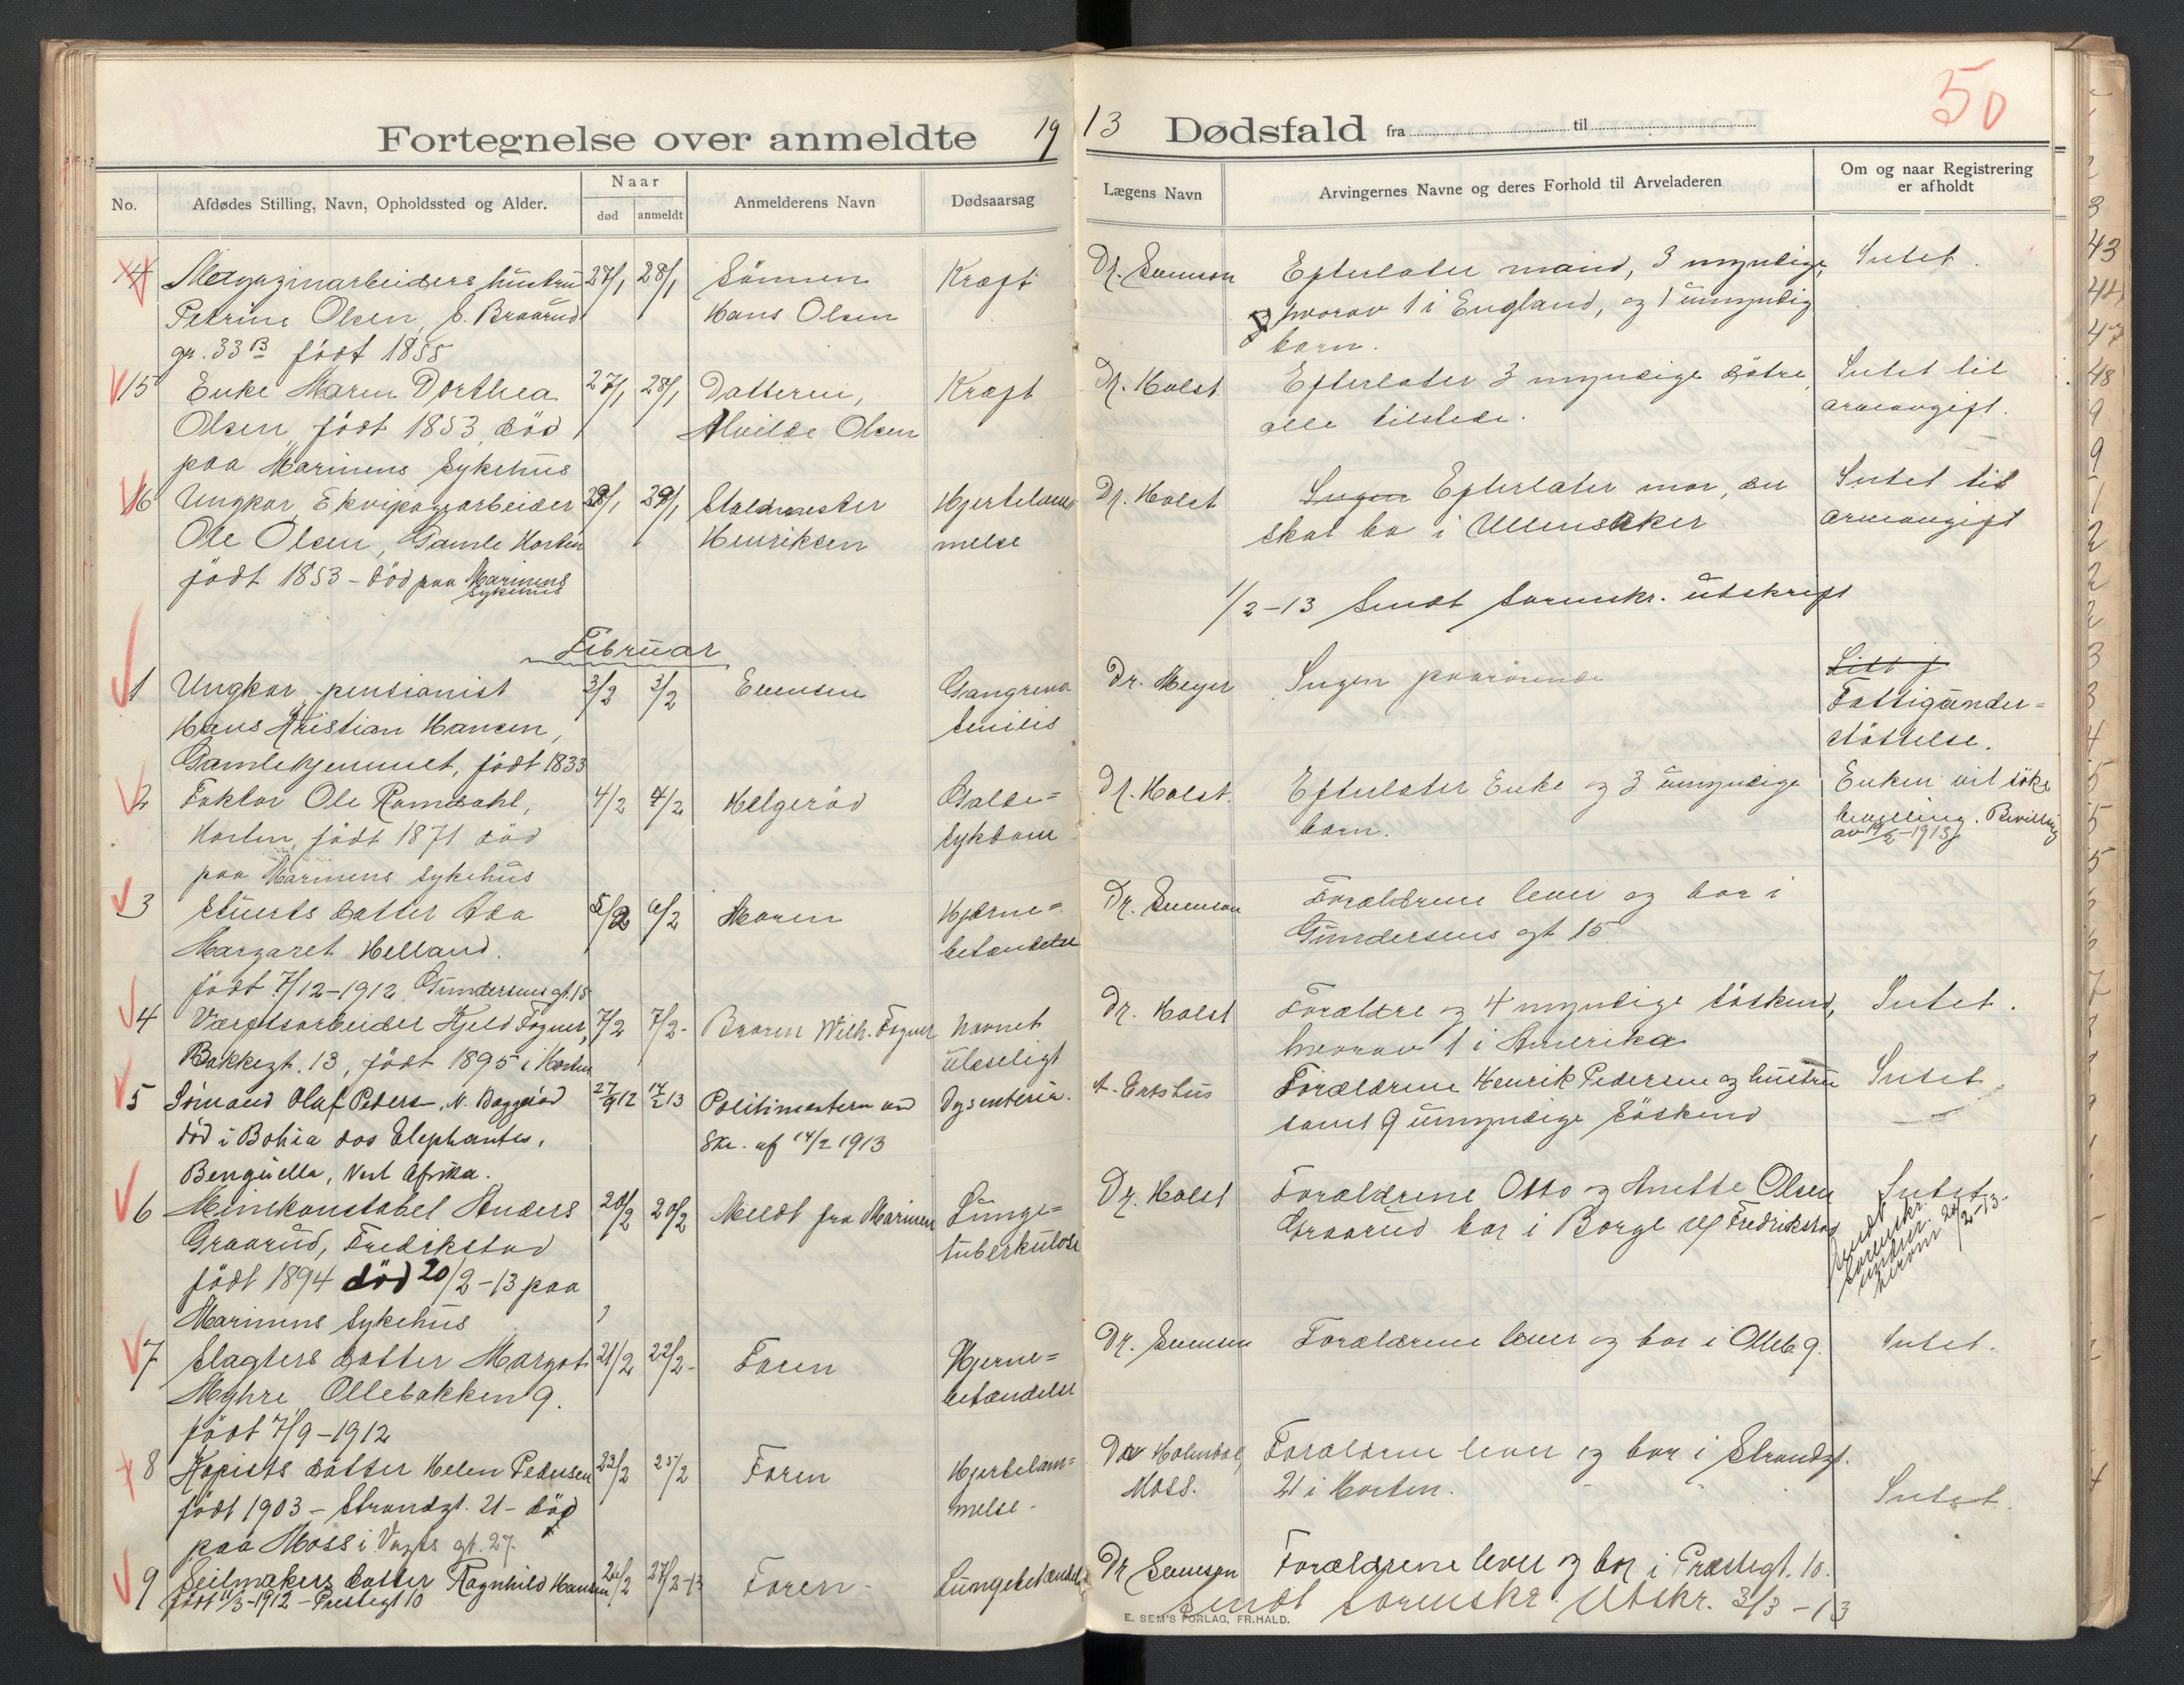 Fortegnelse over anmeldte 1913 Dødsfald fra til
50
No.
Afdødes Stilling, Navn, Opholdssted og Alder.
Naar
død anmeldt
Anmelderens Navn
Dødsaarsag
Lægens Navn
Arvingernes Navne og deres Forhold til Arveladeren
Om og naar Registrering
er afholdt
14 Magazinarbeiders hustru 27/1 28/1 Sönnen Kræft
Petrine Olsen, S. Braarud Hans Olsen
gt. 33 B födt 1855
Efterlater mand, 3 myndige, Intet.
hvorav 1 i England, og 1 umyndig
barn.
15 Enke Maren Dorthea 27/1 28/1 Datteren, Kræft
Olsen, födt 1853, död Alvilde Olsen
paa Marinens Sykehus
Dr. Holst Efterlater 3 myndige dötre, Intet til
alle tilstede. arveavgift.
16 Ungkar Ekvipagearbeider 28/1 29/1 Staldmester Hjertelam
Ole Olsen, Gamle Horten Henriksen melse
födt 1853 - död paa Marinens
Sykehus
Dr. Holst Ingen Efterlater mor, der Intet til
skal bo i Ullensaker arveavgift
1/2-13 Sendt Sorenskr. utskrift
Februar
1 Ungkar, pensionist 3/2 3/2 Evensen Gangrena
Hans Kristian Hansen, senilis
Gamlehjemmet, födt 1833
Dr. Meyer Ingen paarörende
Fattigunder=
stöttelse.
2 Faktor Ole Ramdahl, 4/2 4/2 Helgeröd Galde=
Horten, födt 1871 död sykdom
paa Marinens Sykehus
Dr. Holst. Efterlater Enke og 3 umyndige Enken vil söke
barn. bevilling. Bevilling
av 19/2-1913
3 Stuerts datter Ada 5/2 6/2 Moren Hjerne=
Margaret Helland. betændelse
födt 7/12-1912 Gundersens gt. 15
Forældrene lever og bor i
Gundersens gt 15
4 Værftsarbeider Kjeld Fogner, 7/2 7/2- Broren Wilh. Fogner Navnet
Bakkegt. 13, födt 1895 i Horten uleseligt
Dr. Holst Forældre og 4 myndige söskend, Intet.
hvorav 1 i Amerika
5 Sömand Olaf Peders-, N. Baggeröd 27/9 12 14/2 13 Politimesteren ved Dysenteria.
död i Bohia dos Elephantes, Skr. af 14/2 1913
Benguella, Vest Afrika.
Forældrene Henrik Pedersen og hustru Intet.
samt 9 umyndige Söskend
6 Minekonstabel Anders 20/2 20/2 Meldt fra Marinen Lunge=
Graarud, Fredrikstad tuberkulose
födt 1894 död 20/2-13 paa
Marinens Sykehus
Dr. Holst Forældrene Otto og Anette Olsen Intet
Graarud bor i Borge v/ Fredrikstad
Sendt
Sorenskr.
20/2-13.
7 Slagters datter Margot 21/2 22/2- Faren Hjerne=
Myhre Ollebakken 9. betændelse
födt 7/9-1912
Forældrene lever og bor i Olleb. 9. Intet.
8 Kopists datter Helen Pedersen 23/2 25/2 Faren Hjertelam=
födt 1903 - Strandgt. 21 - död melse -
paa Moss i Vogts gt. 27.
Forældrene lever og bor i Strandgt.
Moss. 21 i Horten. Intet.
9 Seilmakers datter Ragnhild Hansen 26/2 27/2-13 Faren - Lungebetændelse
födt 11/3-1912 - Prestegt 10
Forældrene lever og bor i Præstegt. 10.
Sendt Sorenskr. Utskr. 3/3-13
E. SEM'S FORLAG, FR.HALD.